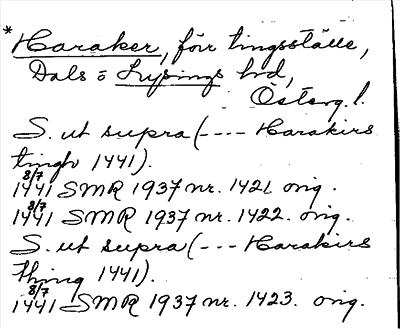 * Haraker, förr tingsställe,
Dals o Lysings hd,
Österg. l.
S. ut supra (---- Harakirs
tingh 1441).
8/7
1441 SMR 1937 nr. 1421 orig.
8/7
1441 SMR 1937 nr. 1422. orig.
S. ut supra (--- Harakirs
thing 1441).
8/7
1441 SMR 1937 nr. 1423. orig.